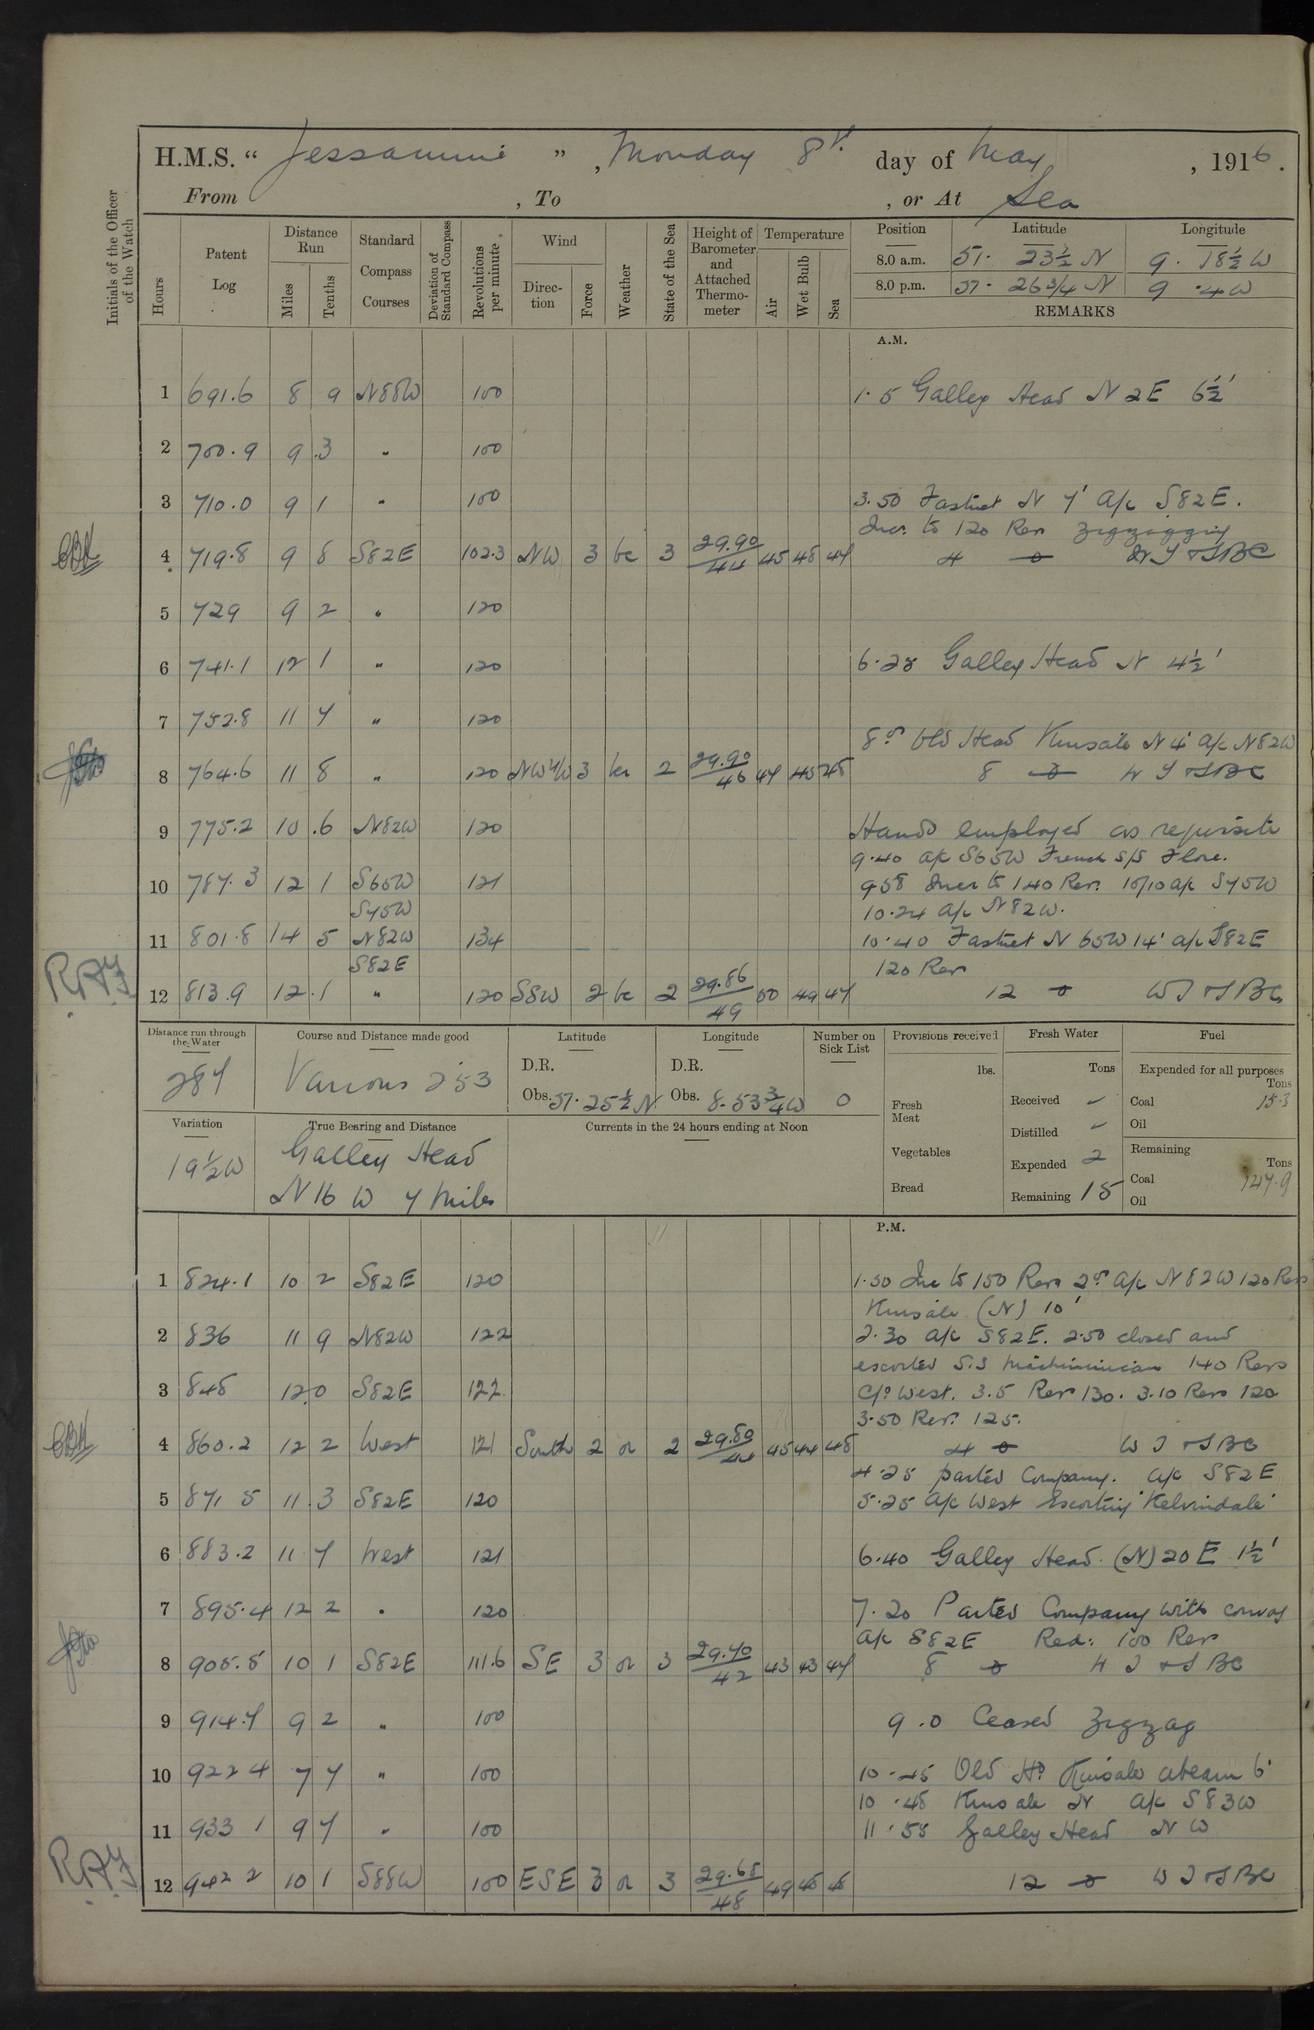 H.M.S. "Jessamine", Monday 8th day of May, 1916.
From , To , or At Sea
Initials of the Officer of the Watch
Hours
Patent Log
Distance Run
Miles
Tenths
Standard Compass Courses
Deviation of Standard Compass
Revolutions per minute
Wind
Direction
Force
Weather
State of the Sea
Height of Barometer and Attached Thermometer
Temperature
Air
Wet Bulb
Sea
Position Latitude Longitude
8.0 a.m. 51. 23½ N 9. 18½ W
8.0 p.m. 51. 26¾ N 9 .4 W
REMARKS
A.M.
1 691.6 8 9 N88W 100 1.5 Galley Head N 2E 6½'
2 700.9 9 .3 " 100
3 710.0 9 1 " 100 3.50 Fastnet N 7' A/c S82E.
Incr. to 120 Rev zigzagging
4 719.8 9 8 S82E 102.3 NW 3 bc 3 29.90/44 45 48 47 4
5 729 9 2 " 120
6 741.1 12 1 " 120 6.28 Galley Head N 4½'
7 752.8 11 7 " 120
8.0 Old Head Kinsale N 4' A/c N82W
8 764.6 11 8 " 120 NW'/W 3 bc 2 29.90/46 47 45 48 8
9 775.2 10 .6 N82W 120 Hands employed as requisite
9.40 A/c S65W French S/S Flore.
10 787.3 12 1 S65W 121 9.58 Incr to 140 Rev. 10/10 a/c S45W
S45W 10.24 A/c N82W.
11 801.8 14 5 N82W 134 10.40 Fastnet N 65W 14' a/c S82E
S82E 120 Rev
12 813.9 12 .1 " 120 SSW 2 bc 2 29.86/49 50 49 47 12
Distance run through the Water
287
Course and Distance made good
Various 253
Latitude
D.R.
Obs. 51. 25½ N
Longitude
D.R.
Obs. 8. 53¾ W
Number on Sick List
0
Provisions received
lbs.
Fresh Meat
Vegetables
Bread
Fresh Water
Tons
Received
Distilled
Expended 2
Remaining 15
Fuel
Expended for all purposes
Tons
Coal 15.3
Oil
Remaining
Tons
Coal 147.9
Oil
Variation
19½ W
True Bearing and Distance
Galley Head
N 16 W 7 Miles
Currents in the 24 hours ending at Noon
P.M.
1 824.1 10 2 S82E 120 1.50 Inc to 150 Revs 2.0 A/c N82W 120 Revs
Kinsale (N) 10'
2 836 11 9 N82W 122 2.30 A/c S82E. 2.50 closed and
escorted S.S 140 Revs
3 848 12 0 S82E 122 C/o West. 3.5 Rev 130. 3.10 Revs 120
3.50 Rev. 125.
4 860.2 12 2 West 121 South 2 or 2 29.80/44 45 44 48 4
4.25 parted Company. A/c S82E
5 871 5 11 .3 S82E 120 5.25 A/c West Escorting "Kelvindale"
6 883.2 11 7 West 121 6.40 Galley Head (N) 20 E 1½'
7 895.4 12 2 " 120 7.20 Parted Company with convoy
A/c S82E Red: 100 Revs
8 905.5 10 1 S82E 111.6 SE 3 or 3 29.70/42 43 43 47 8
9 914.7 9 2 " 100 9.0 Ceased Zigzag
10 922 4 7 7 " 100 10.45 Old Hd Kinsale abeam 6'
10.48 Kinsale N A/c S83W
11 933 1 9 7 " 100 11.55 Galley Head N W
12 942 2 10 1 S88W 100 ESE 3 or 3 29.68/48 49 48 48 12